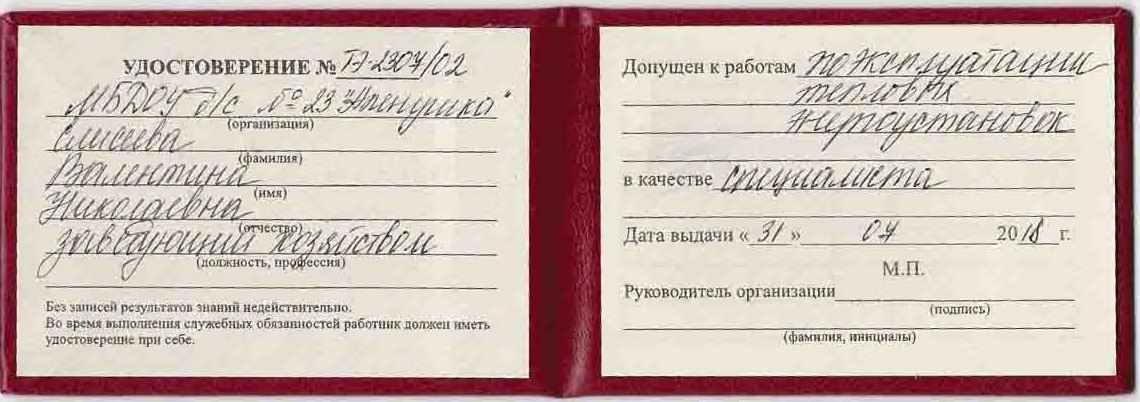 УДОСТОВЕРЕНИЕ № ТЭ-2307/02
МБДОУ д/с № 23 "Аленушка"
(организация)
Елисеева
(фамилия)
Валентина
(имя)
Николаевна
(отчество)
заведующий хозяйством
(должность, профессия)
Без записей результатов знаний недействительно.
Во время выполнения служебных обязанностей работник должен иметь
удостоверение при себе.
Допущен к работам по эксплуатации
тепловых
энергоустановок
в качестве специалиста
Дата выдачи « 31 » 07 2018 г.
М.П.
Руководитель организации
(подпись)
(фамилия, инициалы)